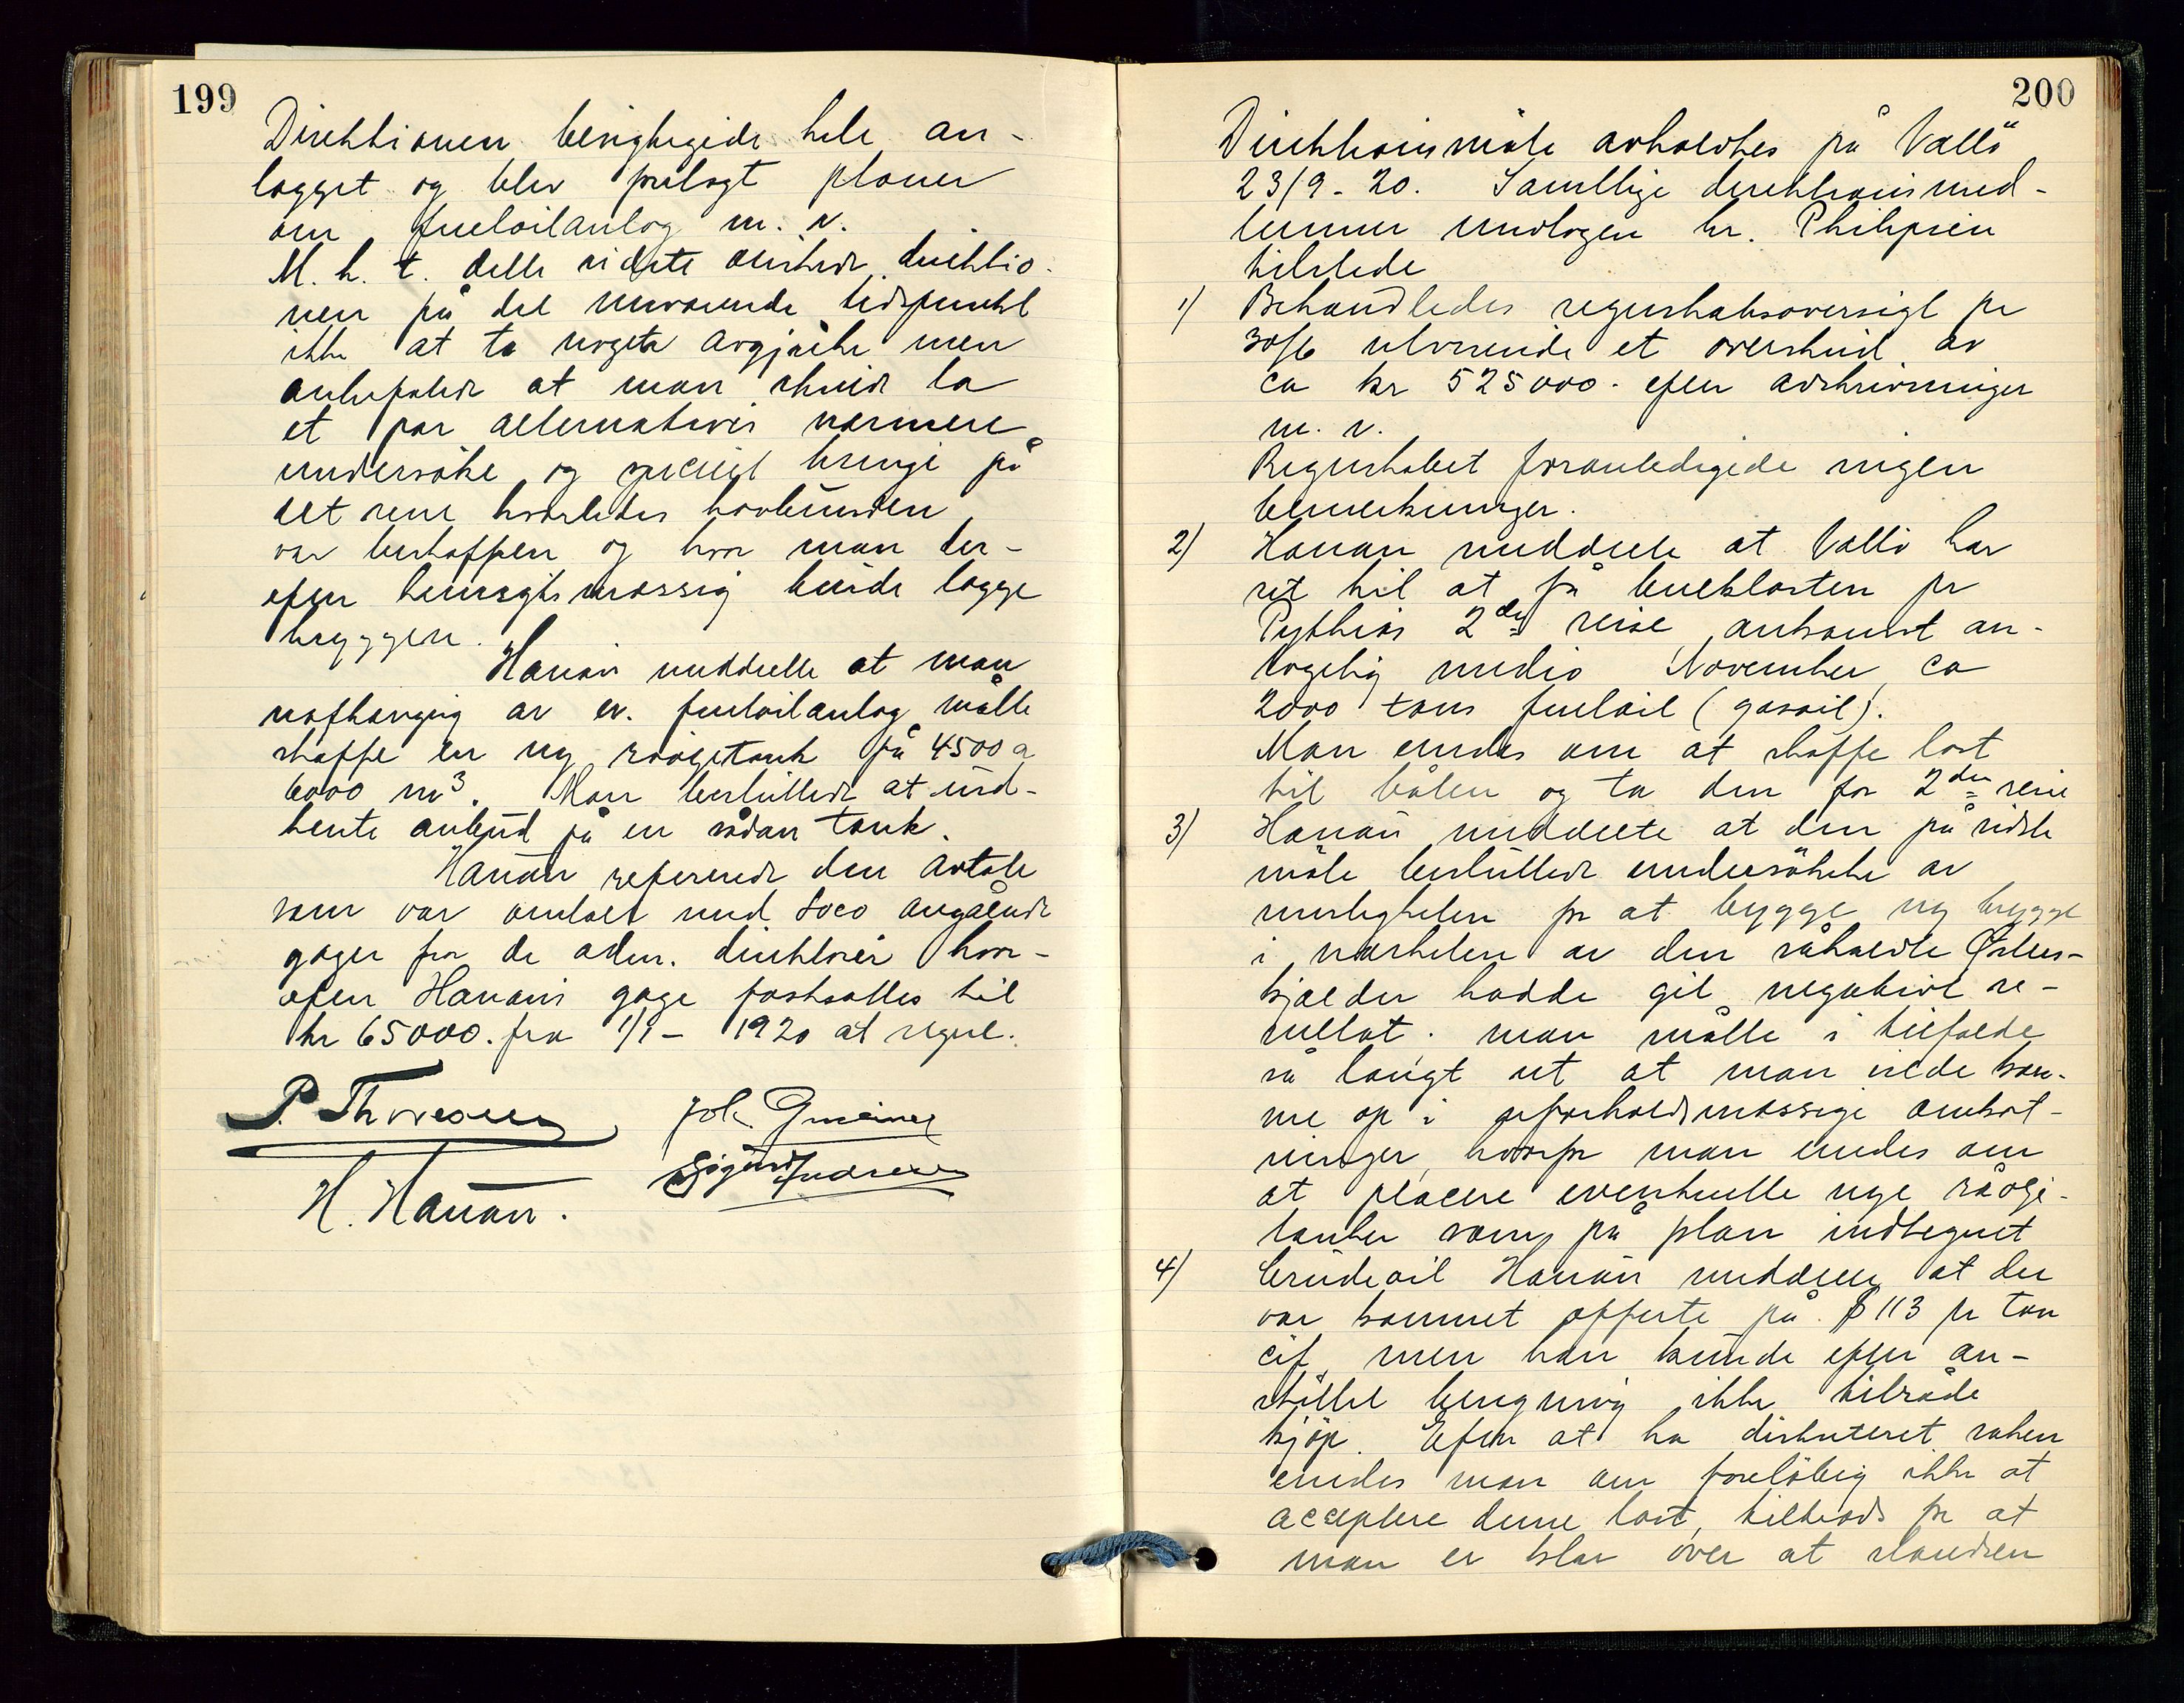 199
Direktionen besigtigede hele an-
lægget og blev frelagt planer
om fueloilanlæg m. v.
M. h. t. dette sidste ønskede direktio-
nen på det nuværende tidspunkt
ikke at ta nogen avgjörelse men
anbefalede at man skulde ta
et par alternativer nærmere
undersøke og specielt bringe på
det rene hvorledes havbunden
var beskaffen og hvor man der-
efter hensigtsmæssig burde lægge
bryggen.
Hanan meddelte at man
uafhængig av ev. fueloilanlæg måtte
skaffe en ny råoljetank på 4500 a
6000 m³. Man besluttede at ind-
hente anbud på en sådan tank.
Hanan refererede den avtale
som var omtalt med Soco angående
gager for de adm. direktører hvor-
efter Hanans gage fastsattes til
kr 65000. fra 1/1 - 1920 at regne.
P. Thoresen Joh. Gmeiner
Sigurd Andresen
H. Hanan.
200
Direktionsmöte avholdtes på Vallö
23/9 - 20. Samtlige direktionsmed-
lemmer undtagen hr. Philipsen
tilstede
1) Behandledes regnskabsoversigt pr
30/6 utvisende et overskud av
ca kr 525000.- efter avskrivninger
m. v.
Regnskabet foranledigede ingen
bemerkninger.
2) Hanan meddelte at Vallö har
ret til at få bulklasten pr
Pythias 2den reise, ankomst an-
tagelig medio November, ca
2000 tons fueloil (gasoil).
Man enedes om at skaffe last
til båten og ta den for 2den reise
3) Hanan meddelte at den på sidste
möte besluttede undersökelse av
muligheten for at bygge ny brygge
i nærheten av den såkaldte Østers-
kjælder hadde git negativt re-
sultat. man måtte i tilfælde
så langt ut at man vilde kom-
me op i uforholdsmæssige omkost-
ninger, hvorfor man enedes om
at placere eventuelle nye råolje-
tanker som på plan indtegnet
4) Crudeoil Hanan meddelte at der
var kommet offerte på $ 113 pr ton
cif, men han kunde efter an-
stillet beregning ikke tilråde
kjöp. Efter at ha diskuteret saken
enedes man om forelöbig ikke at
acceptere denne last, tiltrods for at
man er klar over at standsen